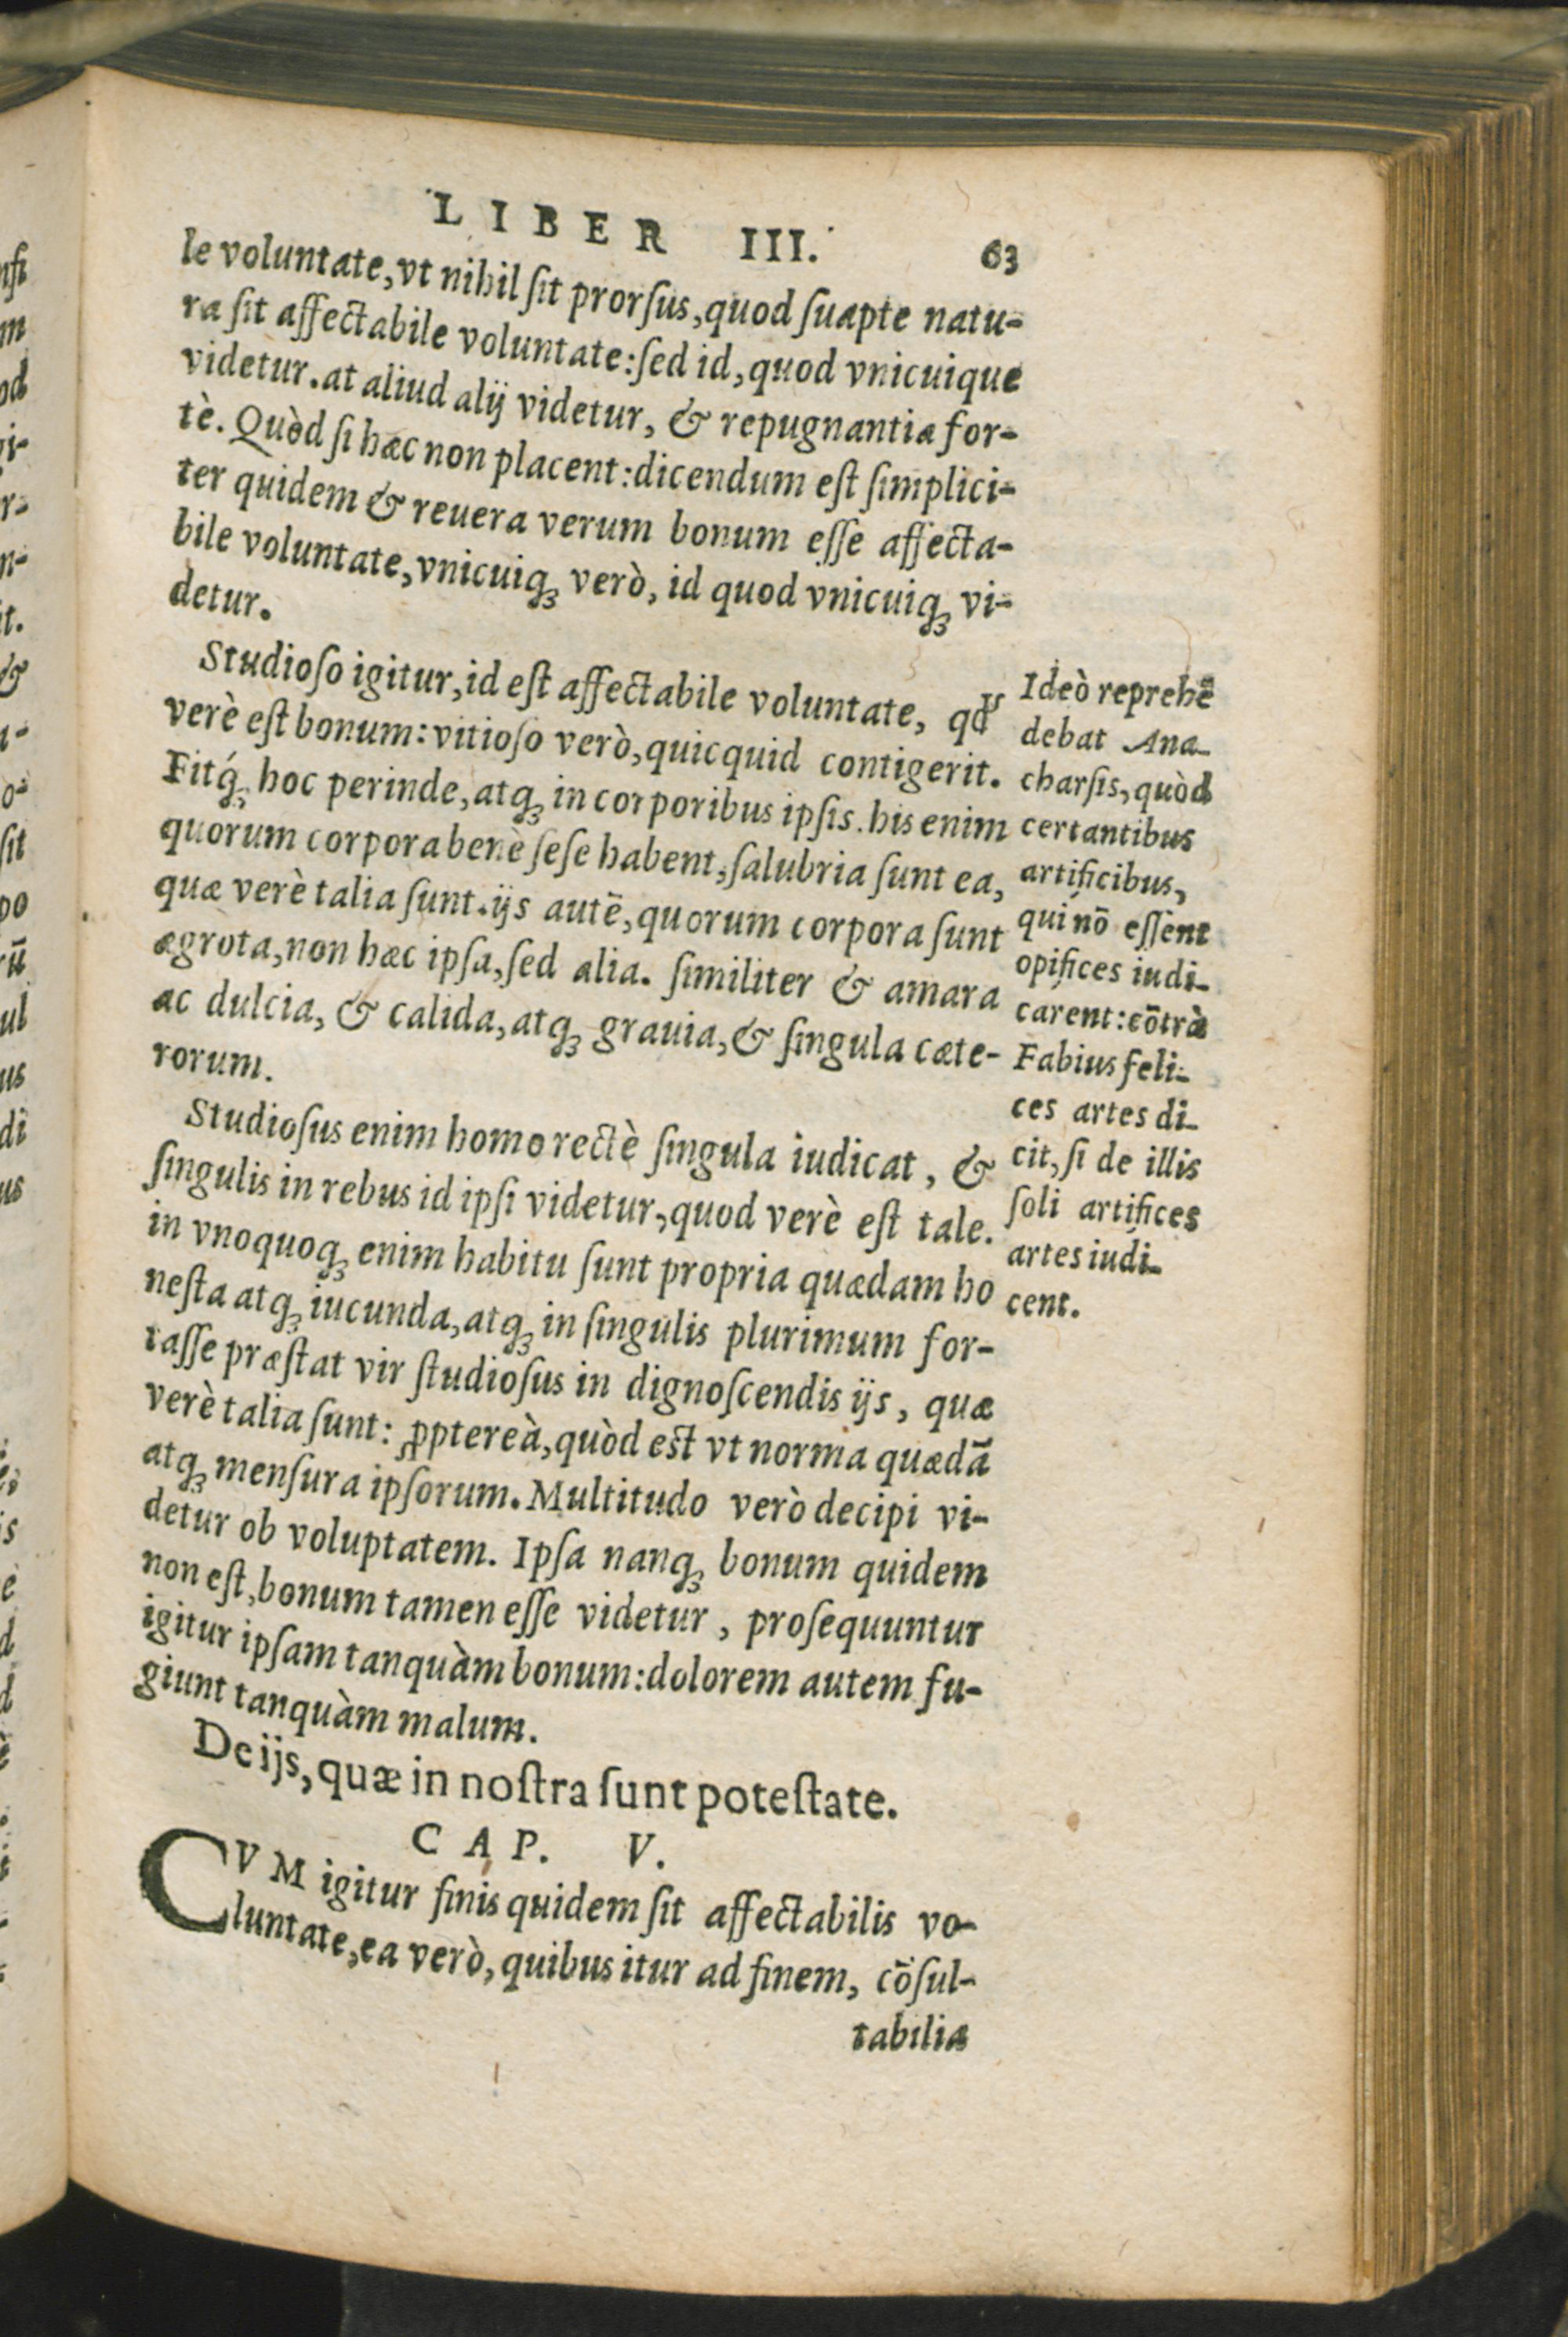 LIBER III. 63
le voluntate, vt nihil ſit prorſus, quod ſuapte natu-
ra ſit affectabile voluntate: ſed id, quod vnicuique
videtur. at aliud alij videtur, & repugnantia for-
tè. Quòd ſi hæc non placent: dicendum eſt ſimplici-
ter quidem & reuera verum bonum eſſe affecta-
bile voluntate, vnicuiqꝫ verò, id quod vnicuiqꝫ vi-
detur.
Studioſo igitur, id eſt affectabile voluntate, qđ
verè eſt bonum: vitioſo verò, quicquid contigerit.
Fitq́ꝫ hoc perinde, atqꝫ in corporibus ipſis. his enim
quorum corpora benè ſeſe habent, ſalubria ſunt ea,
quæ verè talia ſunt. ijs autē, quorum corpora ſunt
ægrota, non hæc ipſa, ſed alia. ſimiliter & amara
ac dulcia, & calida, atqꝫ grauia, & ſingula cæte-
rorum.
Studioſus enim homo rectè ſingula iudicat, &
ſingulis in rebus id ipſi videtur, quod verè eſt tale.
in vnoquoqꝫ enim habitu ſunt propria quædam ho
neſta atqꝫ iucunda, atqꝫ in ſingulis plurimum for-
taſſe præſtat vir ſtudioſus in dignoſcendis ijs, quæ
verè talia ſunt: ꝓptereà, quòd est vt norma quædā
atqꝫ menſura ipſorum. Multitudo verò decipi vi-
detur ob voluptatem. Ipſa nanqꝫ bonum quidem
non eſt, bonum tamen eſſe videtur, proſequuntur
igitur ipſam tanquàm bonum: dolorem autem fu-
giunt tanquàm malum.
Ideò reprehē
debat Ana-
charſis, quòd
certantibus
artificibus,
qui nō eſſent
opifices iudi-
carent: cōtrà
Fabius feli-
ces artes di-
cit, ſi de illis
ſoli artifices
artes iudi-
cent.
De ijs, quæ in noſtra ſunt poteſtate.
CAP. V.
CVM igitur finis quidem ſit affectabilis vo-
luntate, ea verò, quibus itur ad finem, cōſul-
tabilia